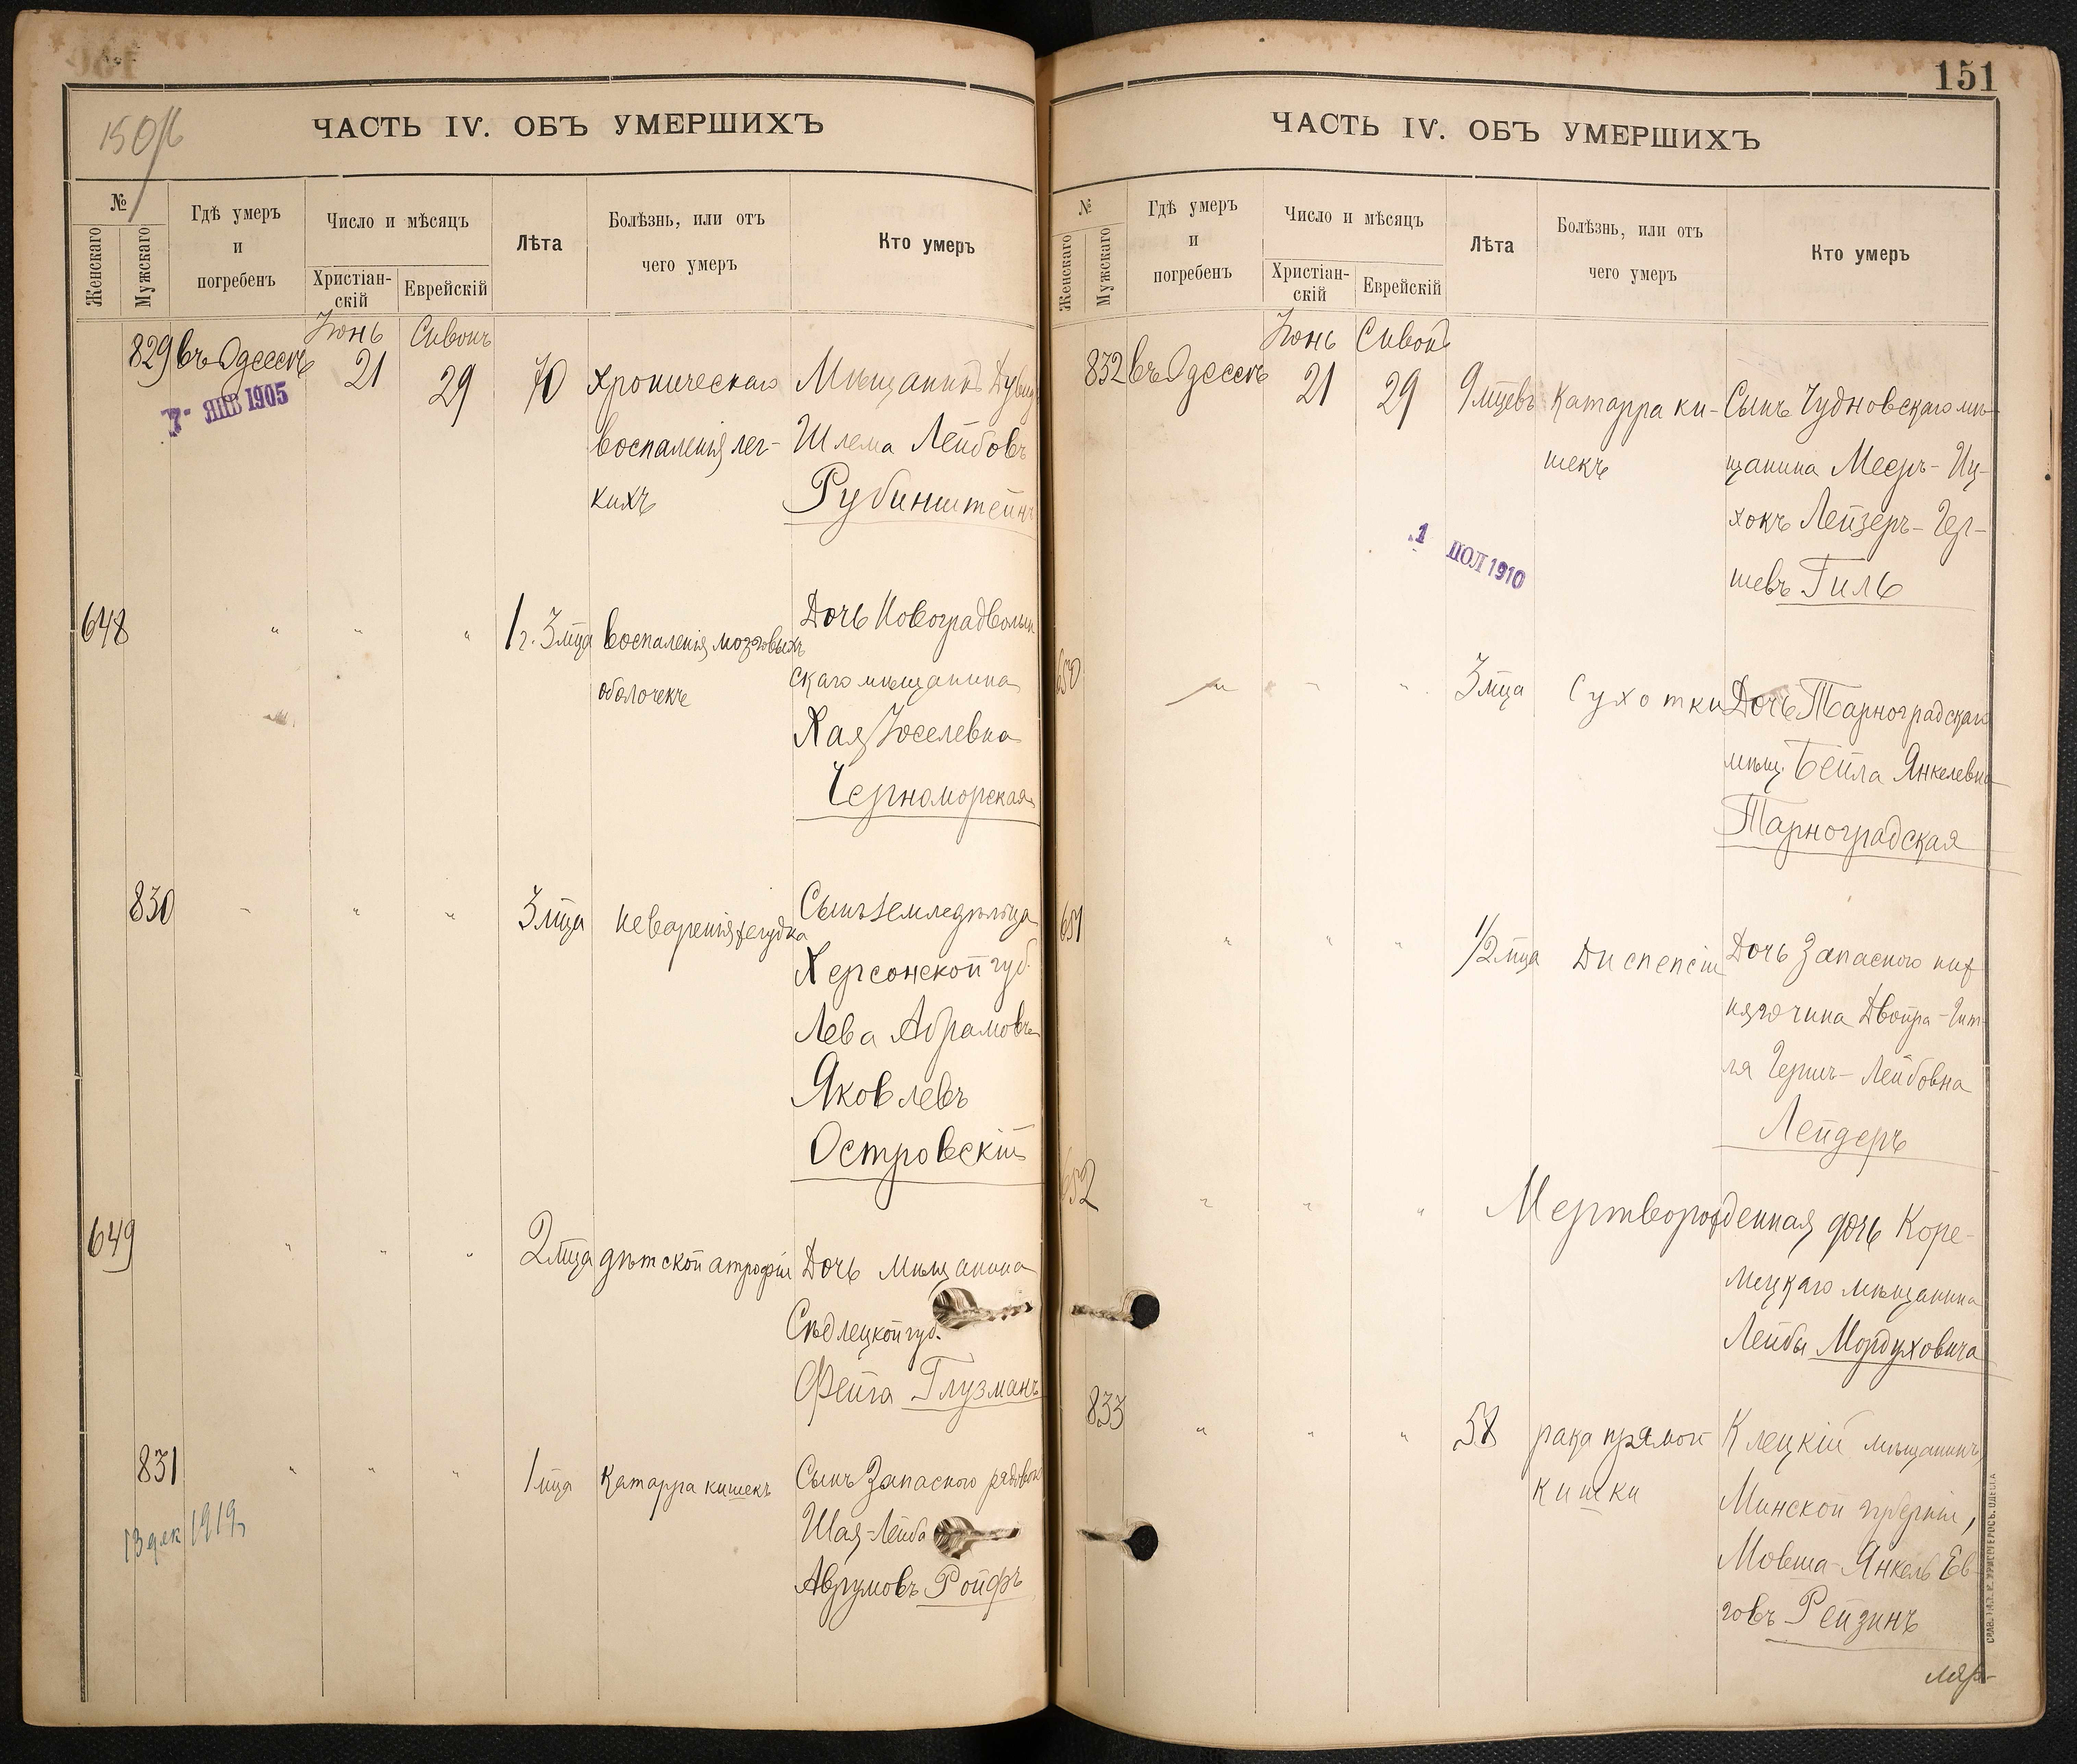 150/б
ЧАСТЬ IV. ОБЪ УМЕРШИХЪ
№
Женскаго
Мужскаго
Гдѣ умеръ
и
погребенъ
Число и мѣсяцъ
Христіан-
скій
Еврейскій
Лѣта
Болѣзнь, или отъ
чего умеръ
Кто умеръ
Іюнь Сивонъ
829 въ Одессѣ 21 29 70 Хроническаго Мѣщанинъ
7- ЯНВ 1905
воспаленія лег- Шлема Лейбовъ
кихъ Рубинштейнъ
648 " " " 1 г. 3 мца воспаленія мозговыхъ Дочь Новоградволын
оболочекъ скаго мѣщанина
Хая Іоселевна
Черноморская
830 " " " 3 мца неваренія желудка Сынъ земледѣльца
Херсонской губ.
Лева Абрамовъ
Яковлевъ
Островскій
649 " " " 2 мца дѣтской атрофіи Дочь мѣщанина
Сѣдлецкой губ.
Фейга Глузманъ
831 " " " 1 мца Катарра кишекъ Сынъ Запаснаго рядового
Шая-Лейба
13 дек 1919
Аврумовъ Ройфъ
151
ЧАСТЬ IV. ОБЪ УМЕРШИХЪ
№
Женскаго
Мужскаго
Гдѣ умеръ
и
погребенъ
Число и мѣсяцъ
Христіан-
скій
Еврейскій
Лѣта
Болѣзнь, или отъ
чего умеръ
Кто умеръ
Іюнь Сивонъ
832 въ Одессѣ 21 29 9 мцевъ Катарра ки- Сынъ Чудновскаго мѣ-
шекъ щанина Мееръ-Иц-
хокъ Лейзеръ-Гер-
1 ІЮЛ 1910
шевъ Гиль
650 " " " 3 мца Сухотки Дочь Тарноградскаго
мѣщ. Бейла Янкелевна
Тарноградская
651 " " " 1/2 мца Диспепсіи Дочь Запаснаго
Двойра-Гит-
ля Герш-Лейбовна
Лейдеръ
652 " " " Мертворожденная дочь Коре-
мецкаго мѣщанина
Лейбы Мордуховича
833 " " " 58 рака прямой Клецкій мѣщанинъ,
кишки Минской губерніи,
Мовша-Янкель Ев-
говъ Рейзинъ